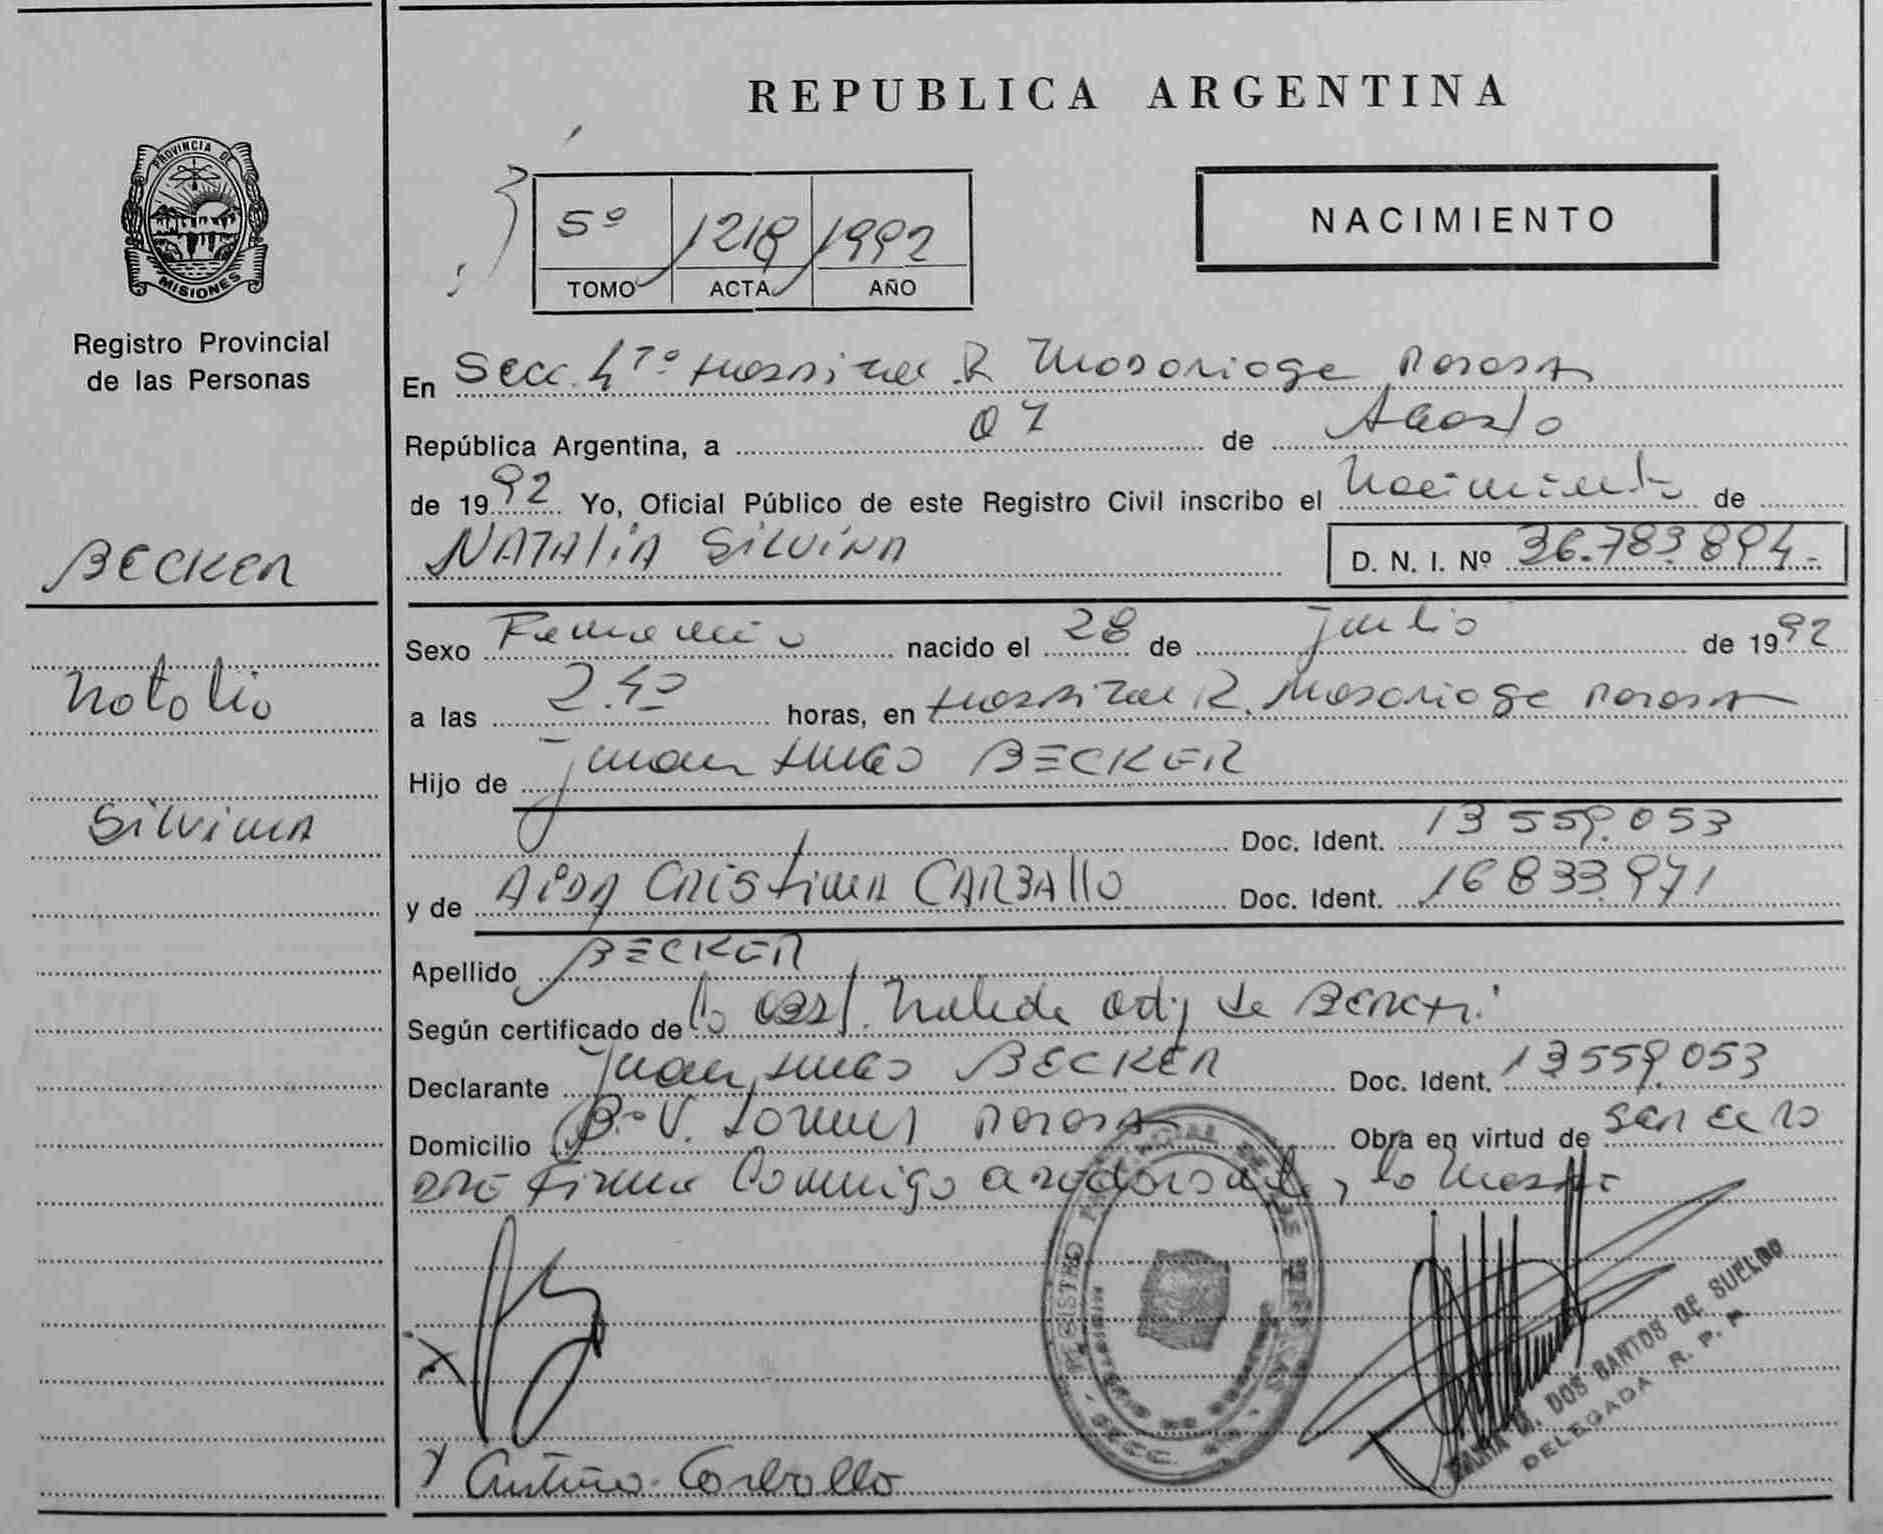 REPUBLICA ARGENTINA
PROVINCIA DE
MISIONES
Registro Provincial
de las Personas
5º 1218 1992
TOMO ACTA AÑO
NACIMIENTO
En Secc. 4ta Hospital R. Madariaga Posadas
República Argentina, a 07 de Agosto
de 1992 Yo, Oficial Público de este Registro Civil inscribo el Nacimiento de
BECKER
NATALIA SILVINA D. N. I. Nº 36.783.894.-
Sexo Femenino nacido el 28 de Julio de 1992
Natalia
a las 2.40 horas, en Hospital R. Madariaga Posadas
Hijo de Juan Hugo BECKER
Silvina
Doc. Ident. 13.559.053
y de AIDA CRISTINA CARBALLO Doc. Ident. 16.833.971
Apellido BECKER
Según certificado de la obst. de
Declarante Juan Hugo BECKER Doc. Ident. 13.559.053
Domicilio Bº V. Posadas Obra en virtud de ser el
padre firma conmigo , la Madre
REGISTRO PROVINCIAL DE LAS PERSONAS
MINISTERIO DE GOBIERNO
SECC.
M. DOS SANTOS DE SUELDO
DELEGADA R. P. P.
y Cristina Carballo